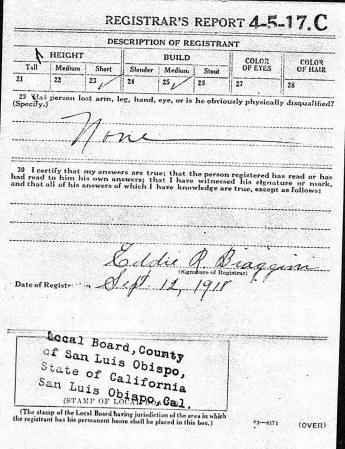 REGISTRAR'S REPORT 4-5-17. C
DESCRIPTION OF REGISTRANT
HEIGHT BUILD COLOR OF EYES COLOR OF HAIR
Tall Medium Short Slender Medium Stout
21 22 23 24 25 26 27 28
29 Has person lost arm, leg, hand, eye, or is he obviously physically disqualified?
(Specify.)
None
30 I certify that my answers are true; that the person registered has read or has
had read to him his own answers; that I have witnessed his signature or mark,
and that all of his answers of which I have knowledge are true, except as follows:
Eddie R. Biaggini
(Signature of Registrar)
Date of Registr Sept. 12, 1918
Local Board, County
of San Luis Obispo,
State of California
San Luis Obispo, Cal.
(STAMP OF LOCAL BOARD)
(The stamp of the Local Board having jurisdiction of the area in which
the registrant has his permanent home shall be placed in this box.)
(OVER)